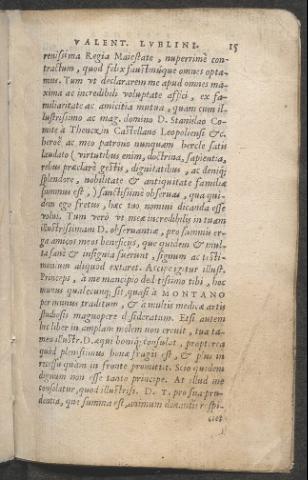 VALENT. LVBLINI. 15
renissima Regia Maiestate, nuperrimè con-
tractum, quod felix faustumque omnes opta-
mus. Tum vt declararem me apud omnes ma-
xima ac incredibili voluptate affici, ex fa-
miliaritate ac amicitia mutua, quam cum il-
lustrissimo ac mag. domino D. Stanislao Co-
mite à Thencxin Castellano Leopoliensi &c.
heroë ac meo patrono nunquam hercle satis
laudato ( virtutibus enim, doctrina, sapientia,
rebus præclarè gestis, dignitatibus, ac deniq;
splendore, nobilitate & antiquitate familiæ
summus est, ) sanctissimè obseruas, qua qui-
dem ego fretus, hæc tuo nomini dicanda esse
volui. Tum verò vt meæ incredibilis in tuam
illustrissimam D. obseruantiæ, pro summis er-
ga amicos meos beneficijs, quæ quidem & mul-
ta sanè & insignia fuerunt, signum ac testi-
monium aliquod extaret. Accipe igitur illust.
Princeps, à me mancipio deditissimo tibi, hoc
munus qualecunq; sit, quasi à MONTANO
per manus traditum, & à multis medicæ artis
studiosis magnopere desideratum. Etsi autem
hic liber in amplam molem non creuit, tua ta-
men illustr. D. æqui boniq; consulat, propterea
quòd plenissimus bonæ frugis est, & plus in
recessu quàm in fronte promittit. Scio quidem
dignum non esse tanto principe. At illud me
consolatur, quod illustriss. D. T. pro sua pru-
dentia, quæ summa est, animum dantis respi-
ciet